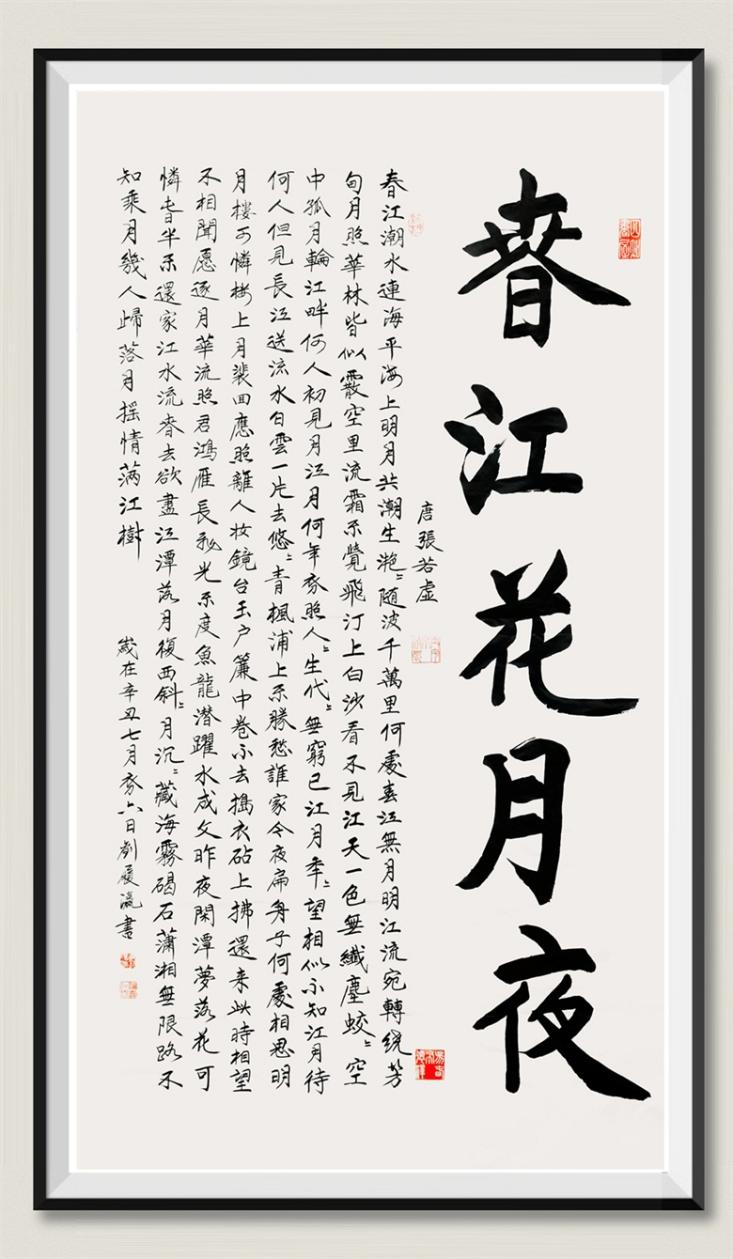 春江花月夜
唐張若虛
春江潮水連海平海上明月共潮生灧〻随波千萬里何處春江無月明江流宛轉繞芳
甸月照華林皆似霰空里流霜不覺飛汀上白沙看不見江天一色無纖塵蛟〻空
中孤月輪江畔何人初見月江月何年初照人〻生代〻無窮已江月年〻望相似不知江月待
何人但見長江送流水白雲一片去悠〻青楓浦上不勝愁誰家今夜扁舟子何處相思明
月樓可憐樓上月裴回應照離人妆鏡台玉户簾中卷不去搗衣砧上拂還来此時相望
不相聞愿逐月華流照君鴻雁長飛光不度魚龍潜躍水成文昨夜閑潭夢落花可
憐春半不還家江水流春去欲盡江潭落月復西斜〻月沉〻藏海霧碣石瀟湘無限路不
知乘月幾人歸落月摇情满江樹
歲在辛丑七月初六日劉履瀛書